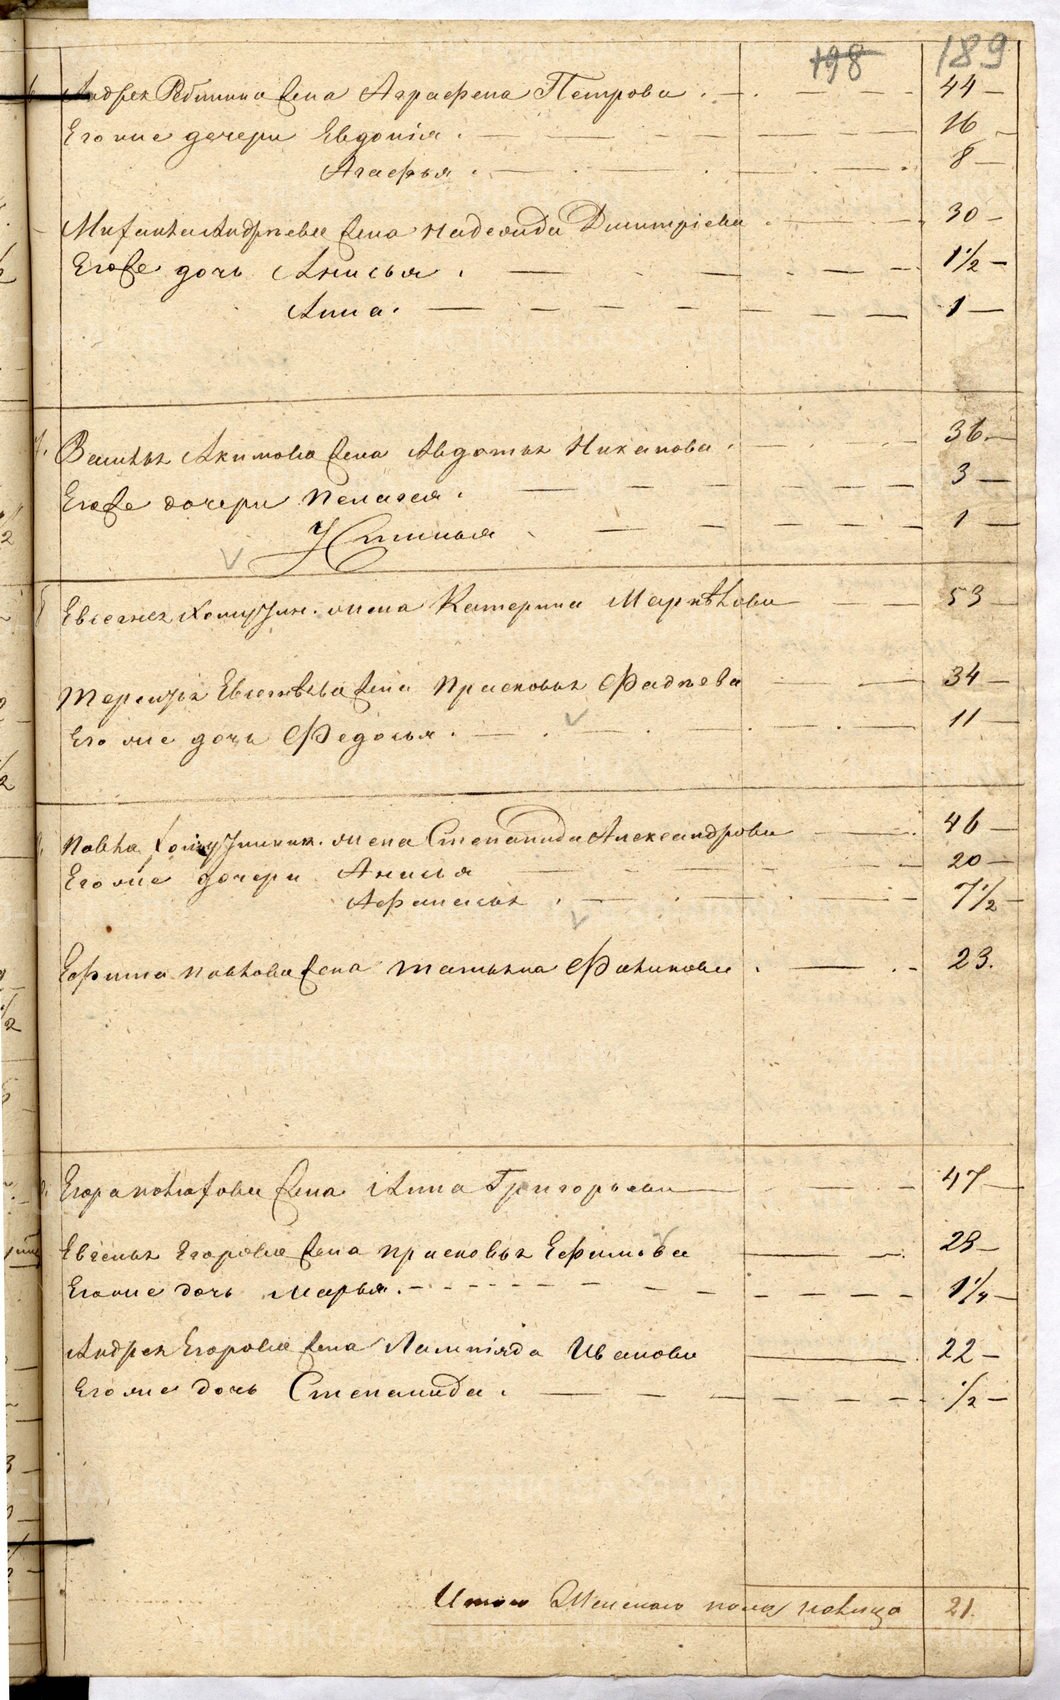 198 189
Андрея Жена Аграфена Петрова 44
Его же дочери Евдокія 16
Агафья 8
Михаила Андрѣева Жена Надежда Димитріева 30
Его же дочь Анисья 1 1/2
Анна 1
Василья Акимова Жена Авдотья 36
Его же дочери Пелагея 3
Устинья 1
Евсегнея жена Катерина Маркѣлова 53
Терентья Евсегнѣева Жена Прасковья Фадѣева 34
Его же дочь Федосья 11
Павла жена Степанида Александрова 46
Его же дочери Анисья 20
Афанасья 7 1/2
Ефима Павлова Жена Татьяна 23.
Егора Жена Анна Григорьева 47
Евсегнея Егорова Жена Прасковья Ефимова 28
Его же дочь Марья 1 1/4
Андрея Егорова Жена Иванова 22
Его же дочь Степанида 1/2
Итого Женскаго пола налицо 21.